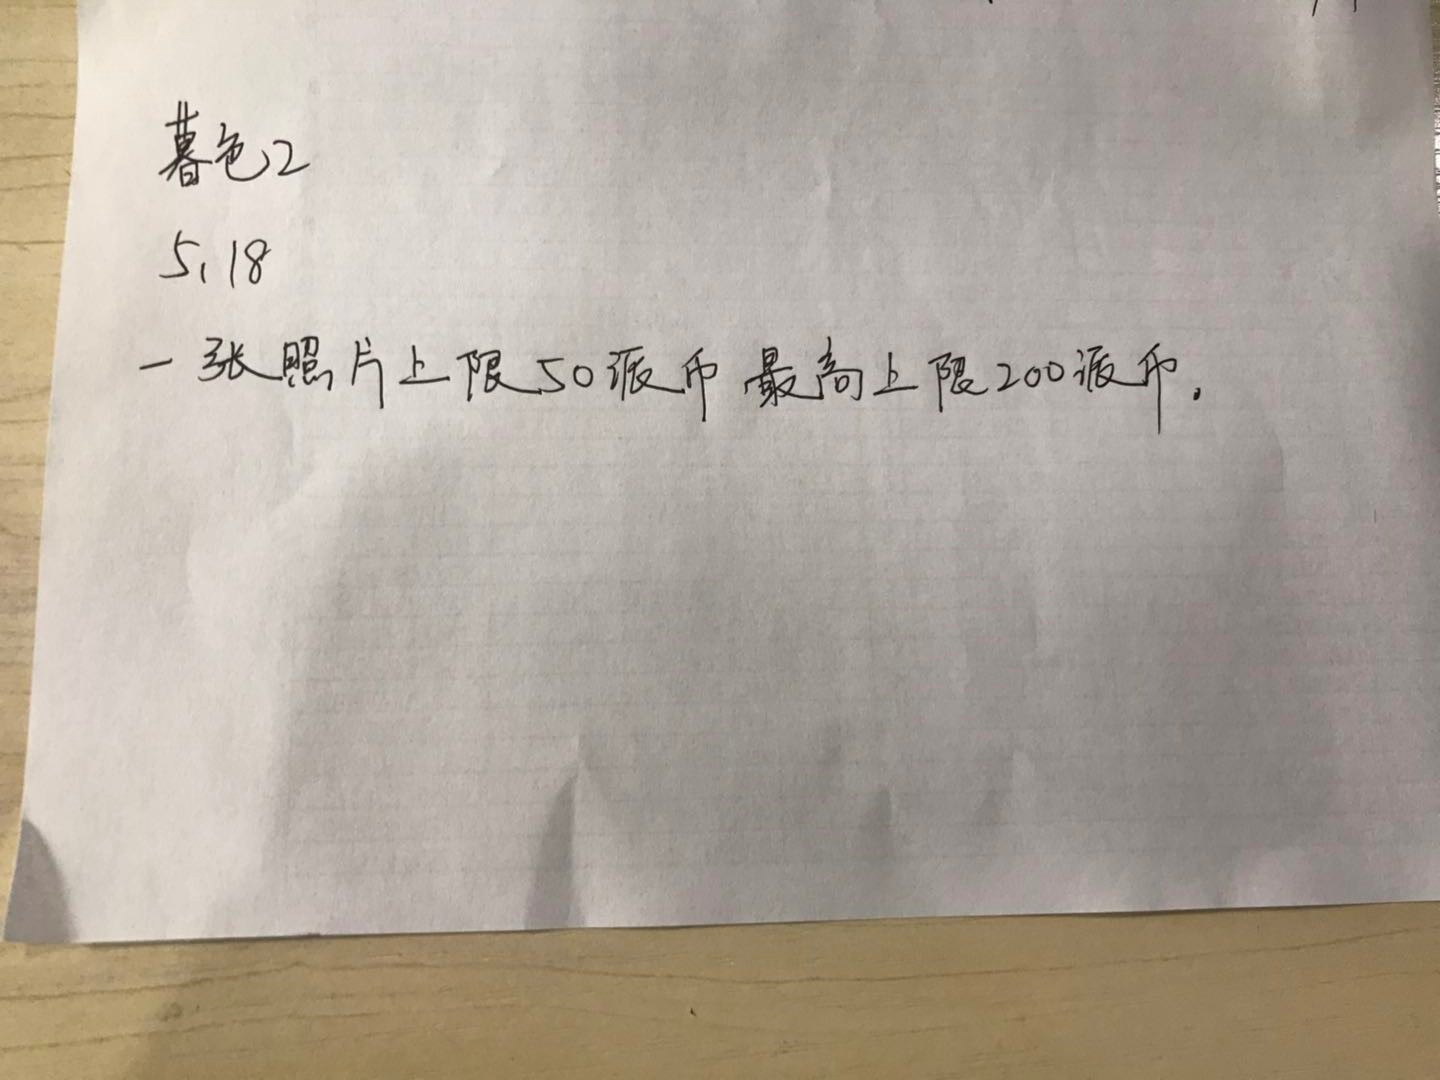 暮色2
5.18
一张照片上限50派币 最高上限200派币.